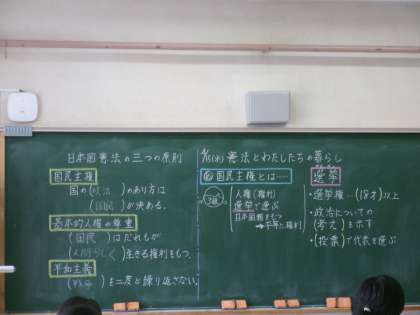 日本国憲法の三つの原則
国民主権
国の(政治)のあり方は
(国民)が決める。
基本的人権の尊重
(国民)はだれもが
(人間らしく)生きる権利をもつ。
平和主義
(戦争)を二度と繰り返さない。
憲法とわたしたちの暮らし
国民主権とは…
人権(権利)
選挙で選ぶ
日本国籍をもつ
→平等に権利
選挙
・選挙権…(18才)以上
・政治についての
(考え)を示す
・(投票)で代表を選ぶ